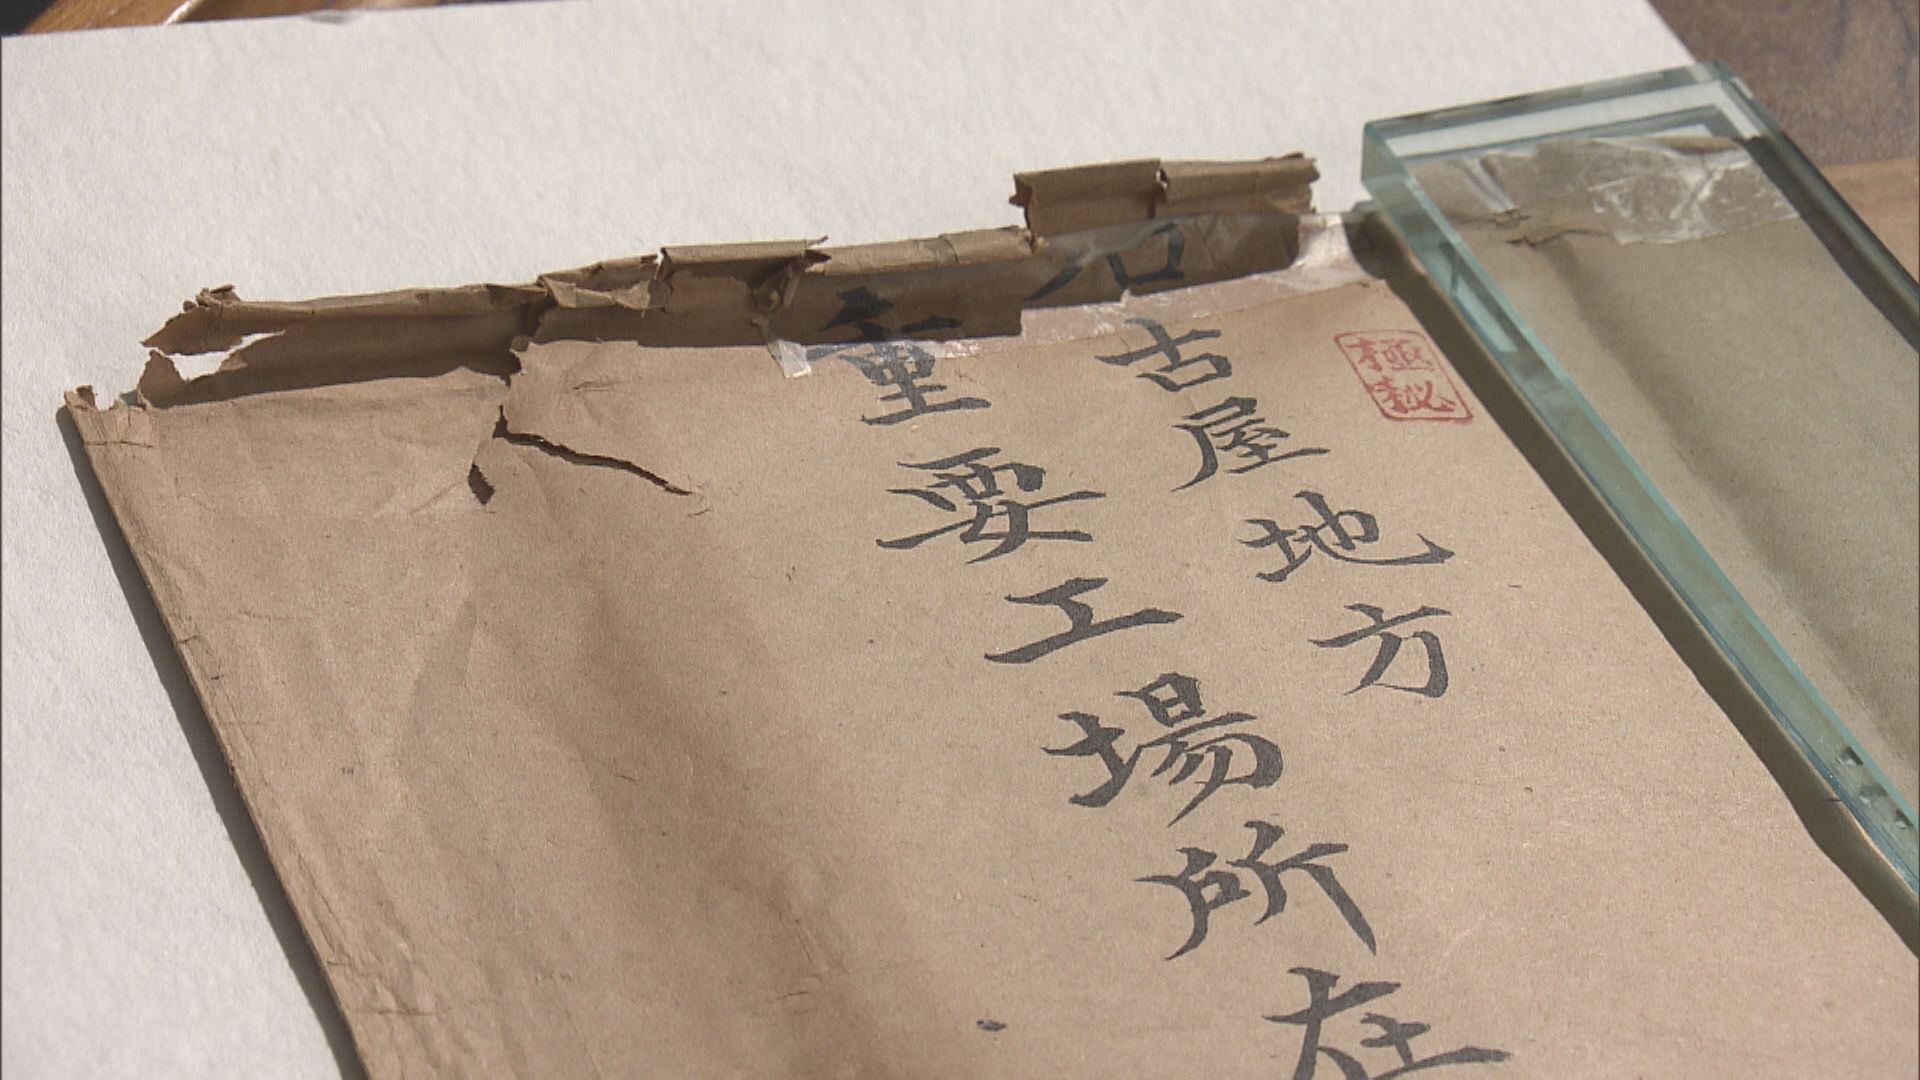 極秘
名古屋地方
重要工場所在